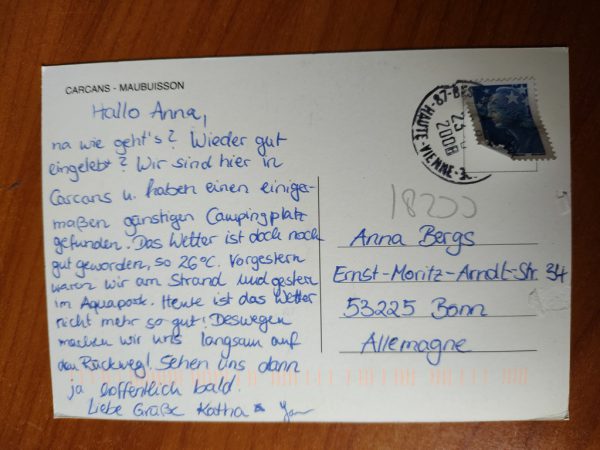 CARCANS - MAUBUISSON
Hallo Anna,
na wie geht's? Wieder gut
eingelebt? Wir sind hier in
Carcans u. haben einen einiger-
maßen günstigen Campingplatz
gefunden. Das Wetter ist doch noch
gut geworden, so 26°C. Vorgestern
waren wir am Strand und gestern
im Aquapark. Heute ist das Wetter
nicht mehr so gut! Deswegen
machen wir uns langsam auf
den Rückweg! Sehen uns dann
ja hoffentlich bald.
Liebe Grüße Katha
87-
HAUTE-VIENNE
2008
18200
Anna Bergs
Ernst-Moritz-Arndt-Str. 34
53225 Bonn
Allemagne